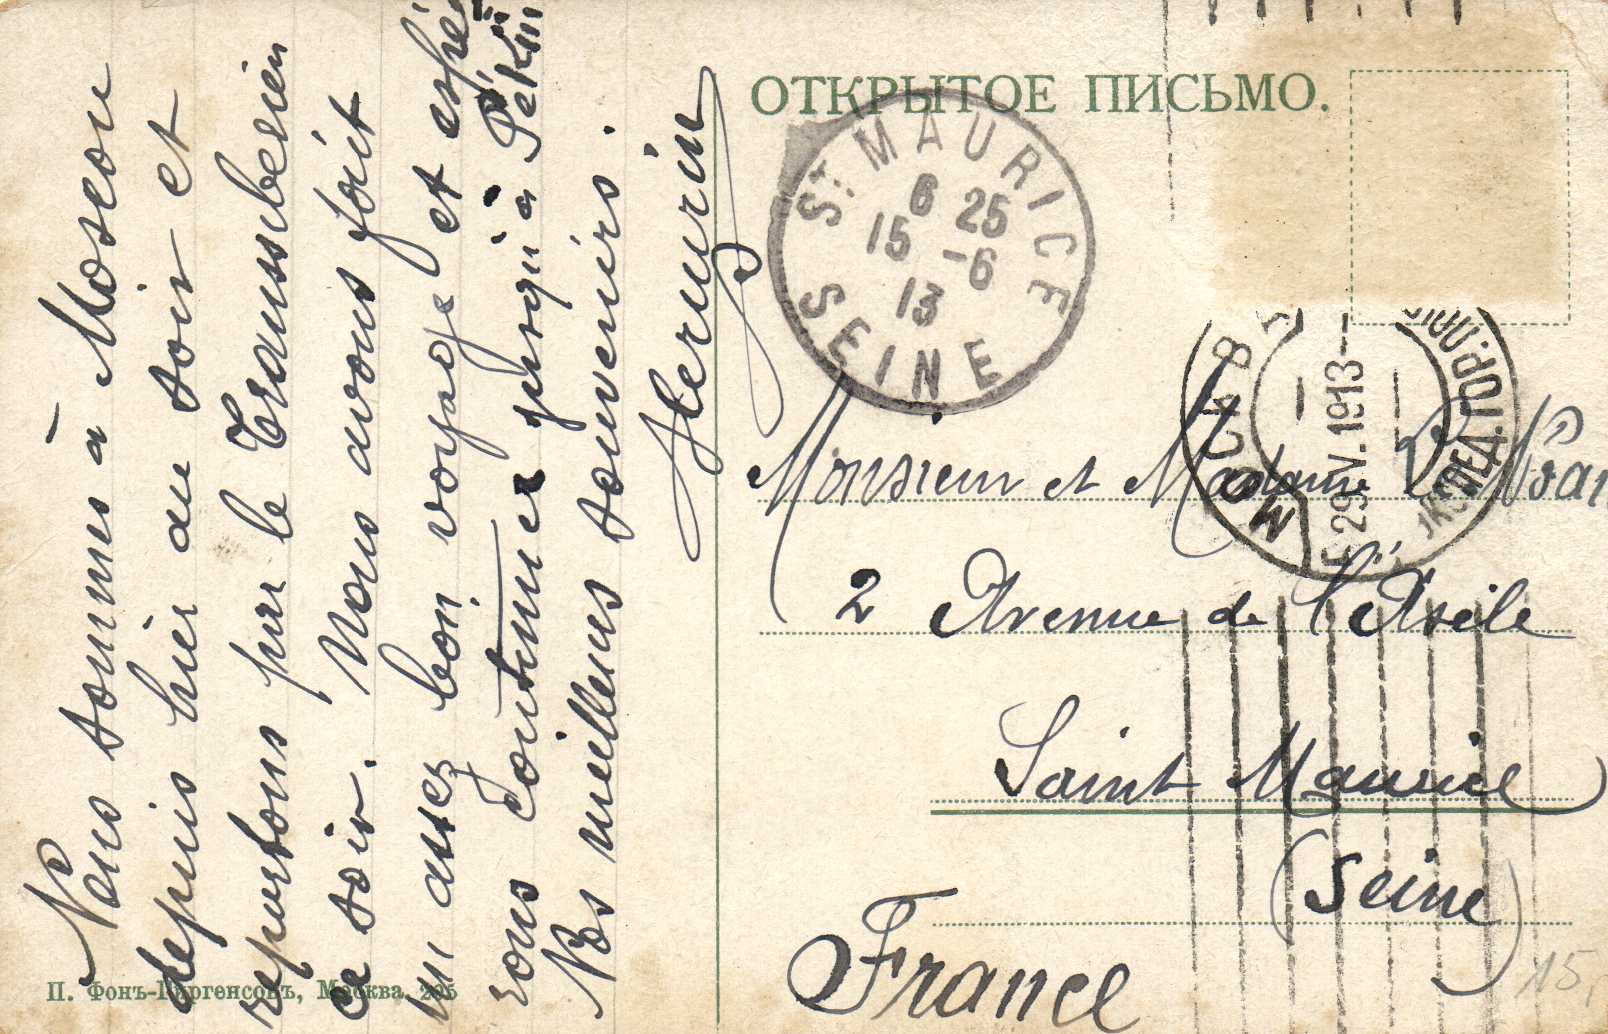 Nous sommes à Moscou
depuis hier au soir et
repartons par le Transsibérien
ce soir. Nous avons fait
un assez bon voyage et espé
rons continuer jusqu'à Pékin
Nos meilleurs souvenirs.
ОТКРЫТОЕ ПИСЬМО.
ST MAURICE
6 25
15 -6
13
SEINE
МОСКВА
29.V.1913
ЭКСПЕД. ГОР. ПОЧ
Monsieur et Madame
2 Avenue de l'Asile
Saint Maurice
(Seine)
France
П. Фонъ-Гиргенсонъ, Москва, 205
15